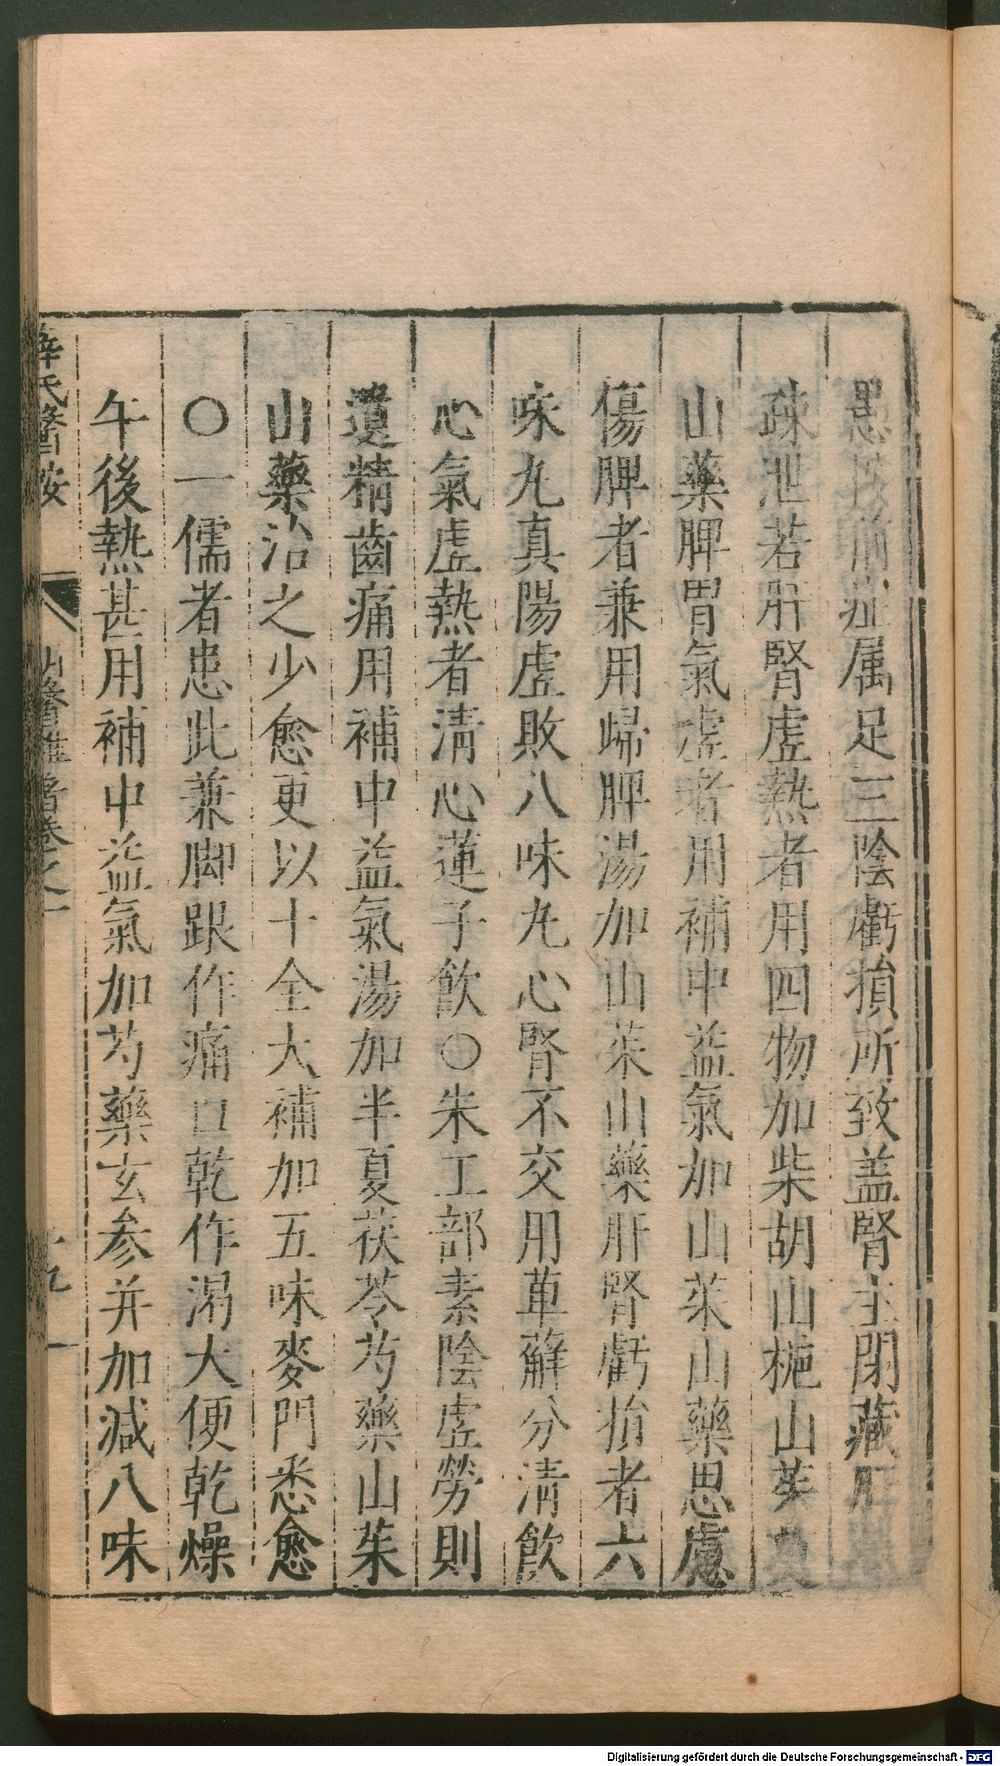 愚按前症属足三陰虧損所致盖腎主閉藏肝
疎泄若肝腎虛熱者用四物加柴胡山梔山茱
山藥脾胃氣虛者用補中益氣加山茱山藥思慮
傷脾者兼用歸脾湯加山茱山藥肝腎虧損者六
味丸真陽虛敗八味丸心腎不交用萆薢分清飲
心氣虛熱者淸心蓮子飲○朱工部素陰虛勞則
遺精齒痛用補中益氣湯加半夏茯苓芍藥山茱
山藥治之少愈更以十全大補加五味麥門悉愈
○一儒者患此兼脚跟作痛口乾作渴大便乾燥
午後熱甚用補中益氣加芍藥玄参并加減八味
薛氏醫按
卷之一
十九
Digitalisierung gefördert durch die Deutsche Forschungsgemeinschaft - DFG